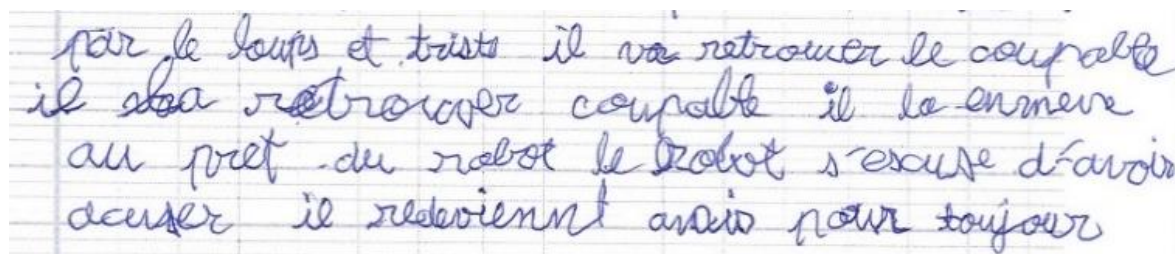 par le loups et triste il va retrouver le coupable
il la retrouver coupable il la enmeve
au pret du robot le Robot s'escuse d'avoir
acuser il redeviennt amis pour toujour